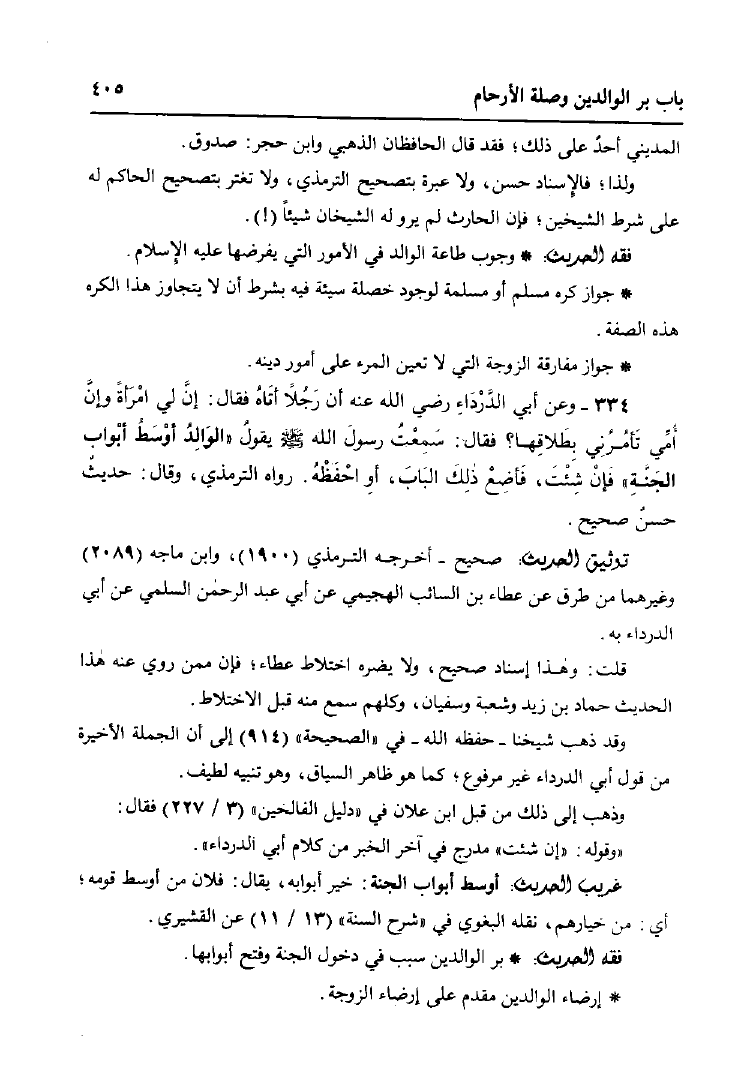 باب بر الوالدين وصلة الأرحام ٤٠٥
المديني أحدٌ على ذلك؛ فقد قال الحافظان الذهبي وابن حجر: صدوق.
ولذا؛ فالإسناد حسن، ولا عبرة بتصحيح الترمذي، ولا تغتر بتصحيح الحاكم له
على شرط الشيخين؛ فإن الحارث لم يرو له الشيخان شيئاً (!).
فقه الحديث: * وجوب طاعة الوالد في الأمور التي يفرضها عليه الإسلام.
* جواز كره مسلم أو مسلمة لوجود خصلة سيئة فيه بشرط أن لا يتجاوز هذا الكره
هذه الصفة.
* جواز مفارقة الزوجة التي لا تعين المرء على أمور دينه.
٣٣٤ ـ وعن أبي الدَّرْدَاءِ رضي الله عنه أن رَجُلًا أتَاهُ فقال: إنَّ لي امْرَأةً وإنَّ
أُمِّي تَأمُرُني بِطَلاقِها؟ فقال: سَمِعْتُ رسولَ الله ﷺ يقولُ «الوَالِدُ أوْسَطُ أبْوابِ
الجَنَّةِ» فَإنْ شِئْتَ، فَأضِعْ ذٰلِكَ البَابَ، أوِ احْفَظْهُ. رواه الترمذي، وقال: حديثٌ
حسنٌ صحيح.
توثيق الحديث: صحيح ـ أخرجه الترمذي (١٩٠٠)، وابن ماجه (٢٠٨٩)
وغيرهما من طرق عن عطاء بن السائب الهجيمي عن أبي عبد الرحمٰن السلمي عن أبي
الدرداء به.
قلت: وهٰذا إسناد صحيح، ولا يضره اختلاط عطاء؛ فإن ممن روي عنه هٰذا
الحديث حماد بن زيد وشعبة وسفيان، وكلهم سمع منه قبل الاختلاط.
وقد ذهب شيخنا ـ حفظه الله ـ في «الصحيحة» (٩١٤) إلى أن الجملة الأخيرة
من قول أبي الدرداء غير مرفوع؛ كما هو ظاهر السياق، وهو تنبيه لطيف.
وذهب إلى ذلك من قبل ابن علان في «دليل الفالحين» (٣ / ٢٢٧) فقال:
«وقوله: «إن شئت» مدرج في آخر الخبر من كلام أبي الدرداء».
غريب الحديث: أوسط أبواب الجنة: خير أبوابه، يقال: فلان من أوسط قومه؛
أي: من خيارهم، نقله البغوي في «شرح السنة» (١٣ / ١١) عن القشيري.
فقه الحديث: * بر الوالدين سبب في دخول الجنة وفتح أبوابها.
* إرضاء الوالدين مقدم على إرضاء الزوجة.